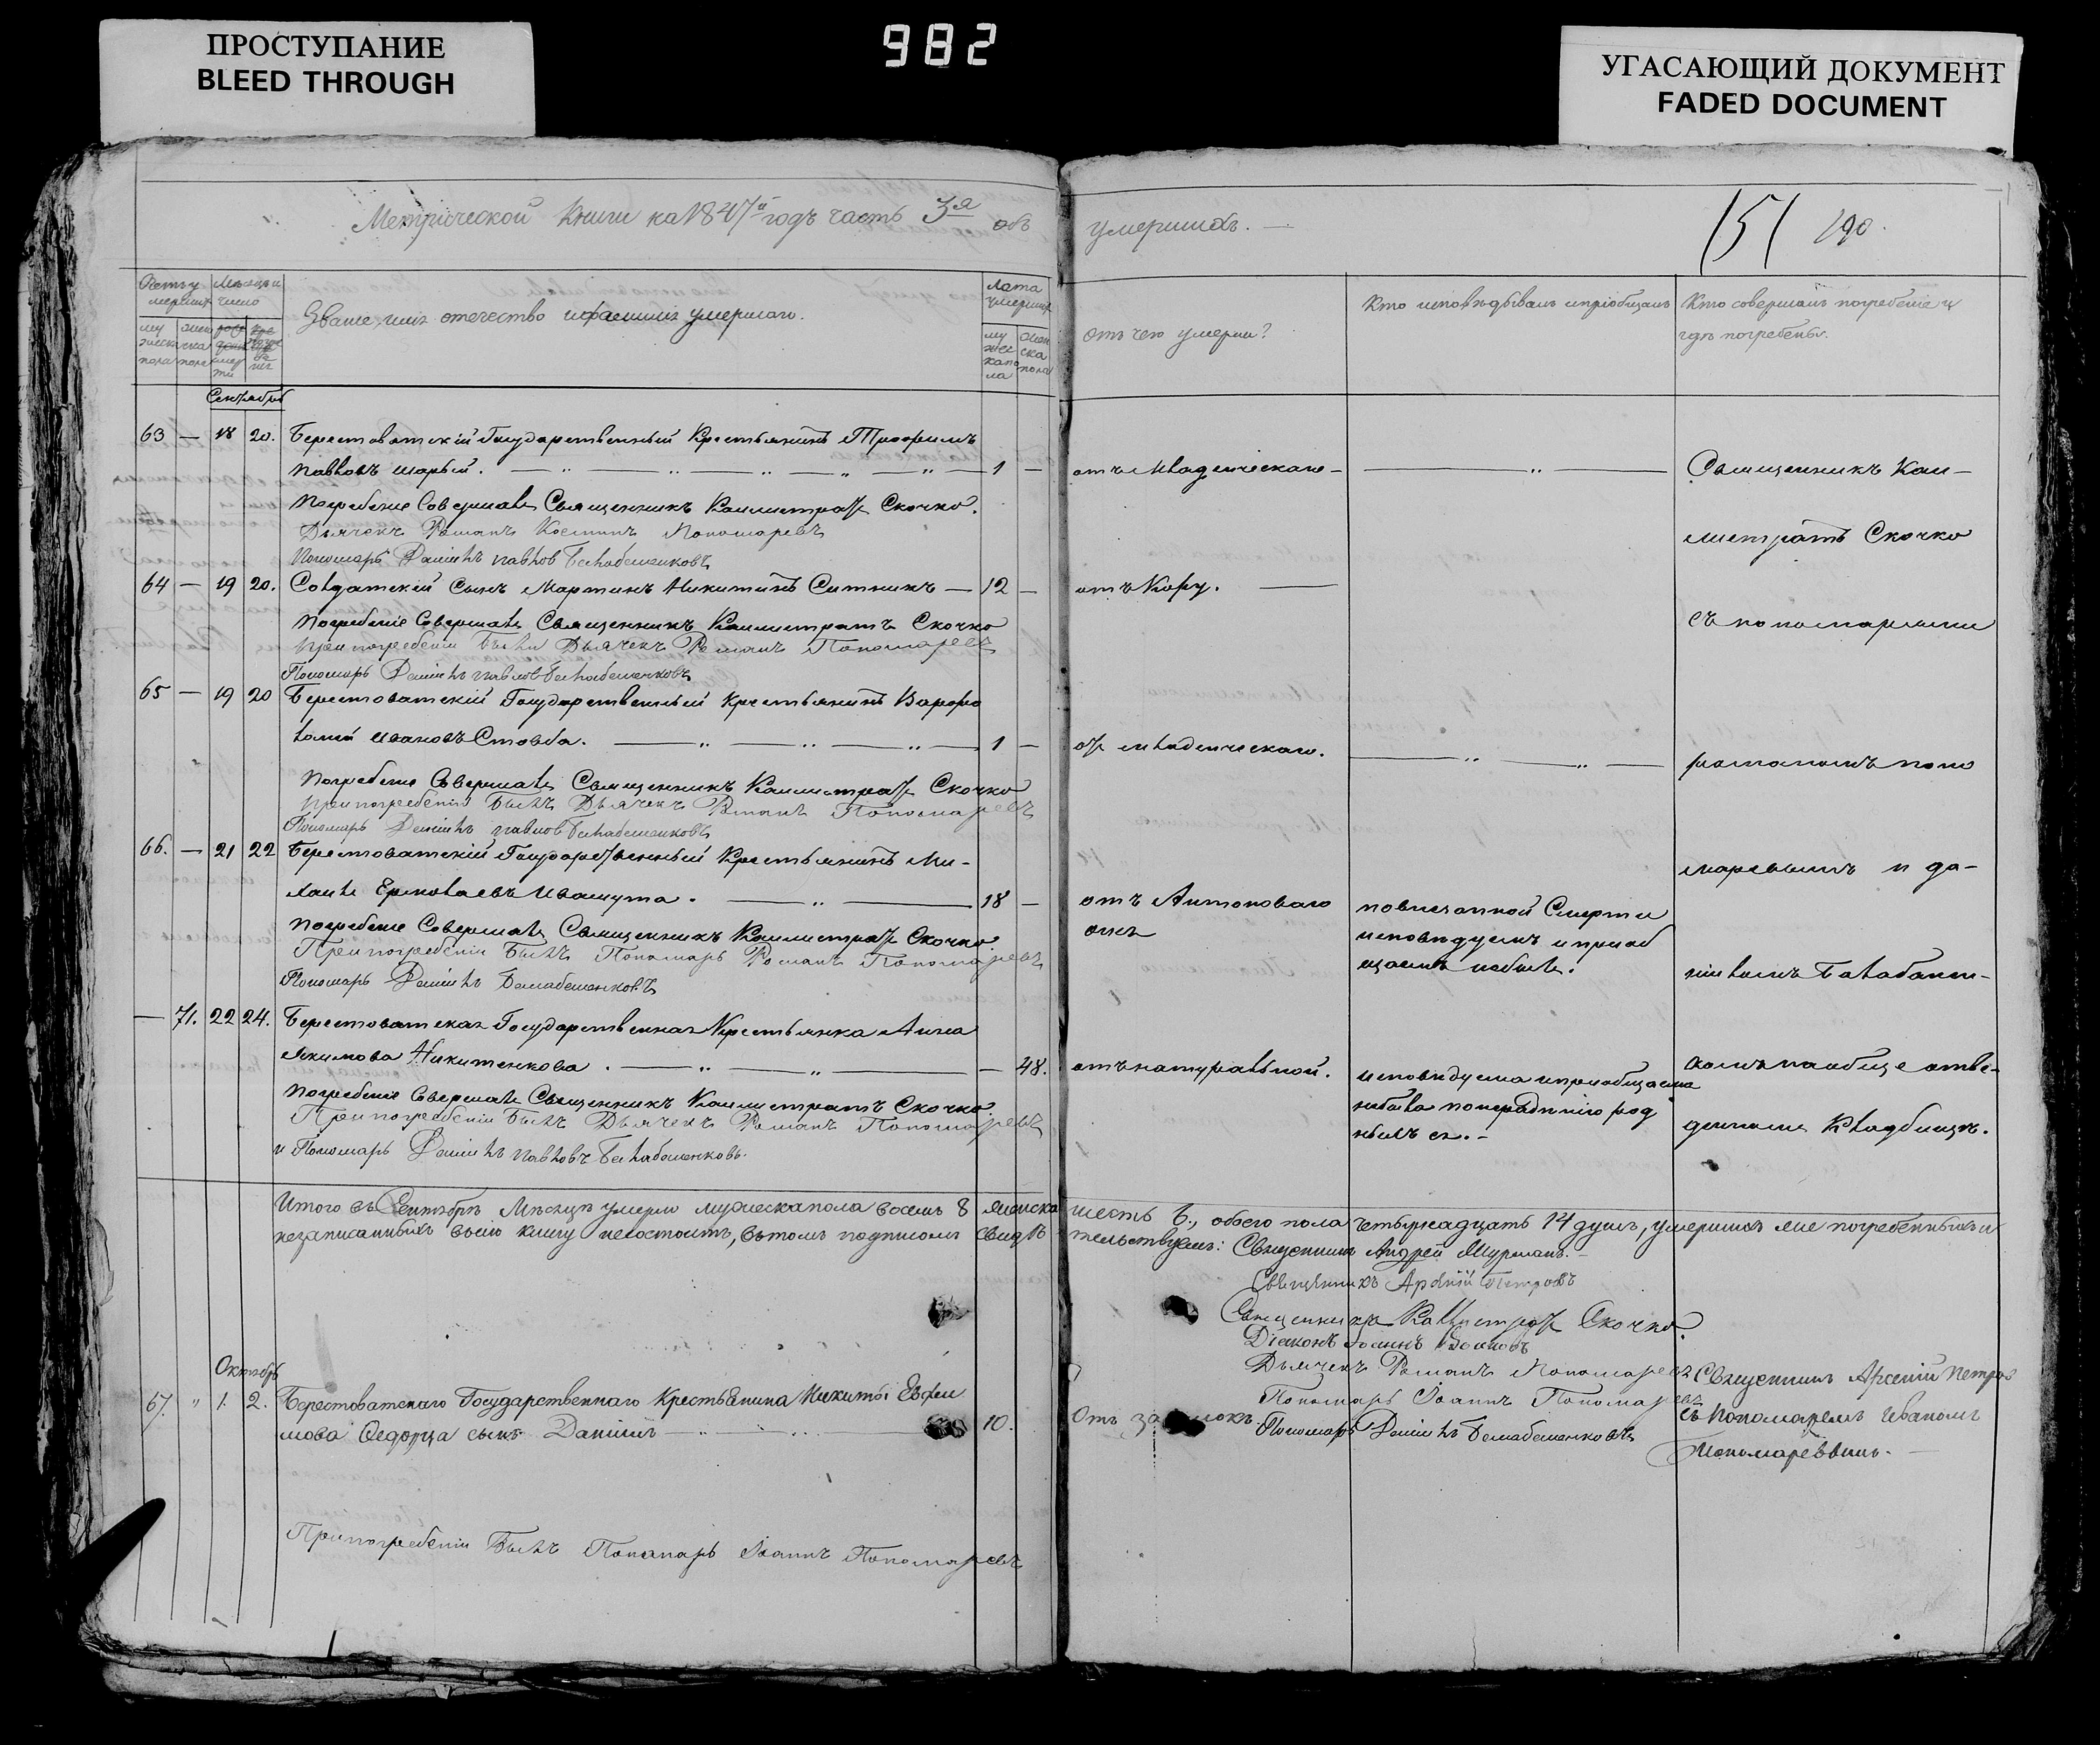 ПРОСТУПАНИЕ
BLEED THROUGH
982
УГАСАЮЩИЙ ДОКУМЕНТ
FADED DOCUMENT
Метрической Книги на 1847й годъ часть 3я объ умершихъ. —
151 190.
Счетъ умершихъ
Мѣсяцъ и число
Званіе, имя отечество и фамилія умершаго.
Лѣта умершихъ
отъ чего умерли?
Кто исповѣдывалъ и пріобщалъ
Кто совершалъ погребеніе и
гдѣ погребены.
Сентябрь
63 — 18 20. Берестоватскій Государственный Крестьянинъ Трофимъ
Павловъ Шарый. — 1 — отъ младенческаго — Священникъ Кал-
Погребеніе Совершалъ Священникъ Каллистратъ Скочко.
Дьячекъ Романъ Пономаревъ
листратъ Скочко
Пономарь Даніилъ Павлов Балабашенковъ
64 — 19 20. Солдатскій Сынъ Мартинъ Никитинъ Ситникъ — 12 — отъ Кору. —
Погребеніе Совершалъ Священникъ Каллистратъ Скочко
съ пономарями
При погребеніи Были Дьячекъ Романъ Пономаревъ
Пономарь Даніилъ Павлов Балабашенковъ
65 — 19 20 Берестоватскій Государственный Крестьянинъ Варфо
ломей Ивановъ Стовба. — 1 — отъ младенческаго. — романомъ поно
Погребеніе Совершалъ Священникъ Каллистратъ Скочко
При погребеніи Былъ Дьячекъ Романъ Пономаревъ
Пономарь Даніилъ Павлов Балабашенковъ
66. — 21 22 Берестоватскій Государственный Крестьянинъ Ми-
маревымъ и да-
хаилъ Ермолаевъ Ивашута. — 18 — отъ Антоноваго
огня
по внезапной Смерти
исповѣдуемъ и приоб
щаемъ небылъ.
Погребеніе Совершалъ Священникъ Каллистратъ Скочко.
При погребеніи Былъ Пономарь Романъ Пономаревъ
Пономарь Даніилъ Балабашенковъ
ніиломъ Балабашен-
— 71. 22 24. Берестоватская Государственная Крестьянка Анна
Якимова Никитенкова. — 48. отъ натуральной.
исповѣдуема и приобщаема
небыла по нерадѣнію род
ныхъ ея. —
комъ на общеотве-
Погребеніе Совершалъ Священникъ Каллистратъ Скочко.
При погребеніи Былъ Дьячекъ Романъ Пономаревъ
денномъ Кладбищѣ.
и Пономарь Даніилъ Павловъ Балабашенковъ.
Итого въ Сентябрѣ Мѣсяцѣ умерло мужеска пола восемь 8 женска шесть 6., обоего пола четырнадцать 14 душъ, умершихъ же погребенныхъ и
незаписанныхъ въ сію книгу несостоитъ, въ томъ подписомъ свидѣтельствуемъ: Священникъ Андрей Шурманъ. —
Священникъ Арсеній Петровъ
Священникъ Каллистратъ Скочко.
Діаконъ Іоаннъ
Дьячекъ Романъ Пономаревъ
Пономарь Іоаннъ Пономаревъ
Пономарь Даніилъ Балабашенковъ
Октябрь
67. " 1. 2. Берестоватскаго Государственнаго Крестьянина Никиты Евфи
мова Федорца сынъ Даніилъ — 10. Отъ
Священникъ Арсеній Петров
съ пономаремъ Иваномъ
Пономаревымъ. —
При погребеніи Былъ Пономарь Іоаннъ Пономаревъ